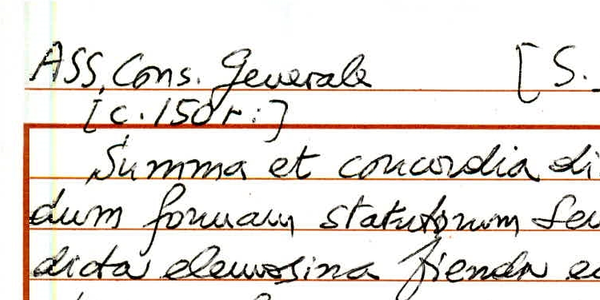 ASS. Cons. Generale [S.
[c. 150 r.]
Summa et concordia di
dum formam statutorum Seu
dicta elemosina fienda ea